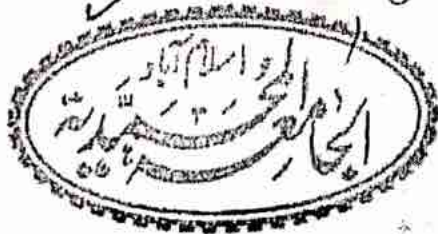 الجامعة المحمدية
اسلام آباد